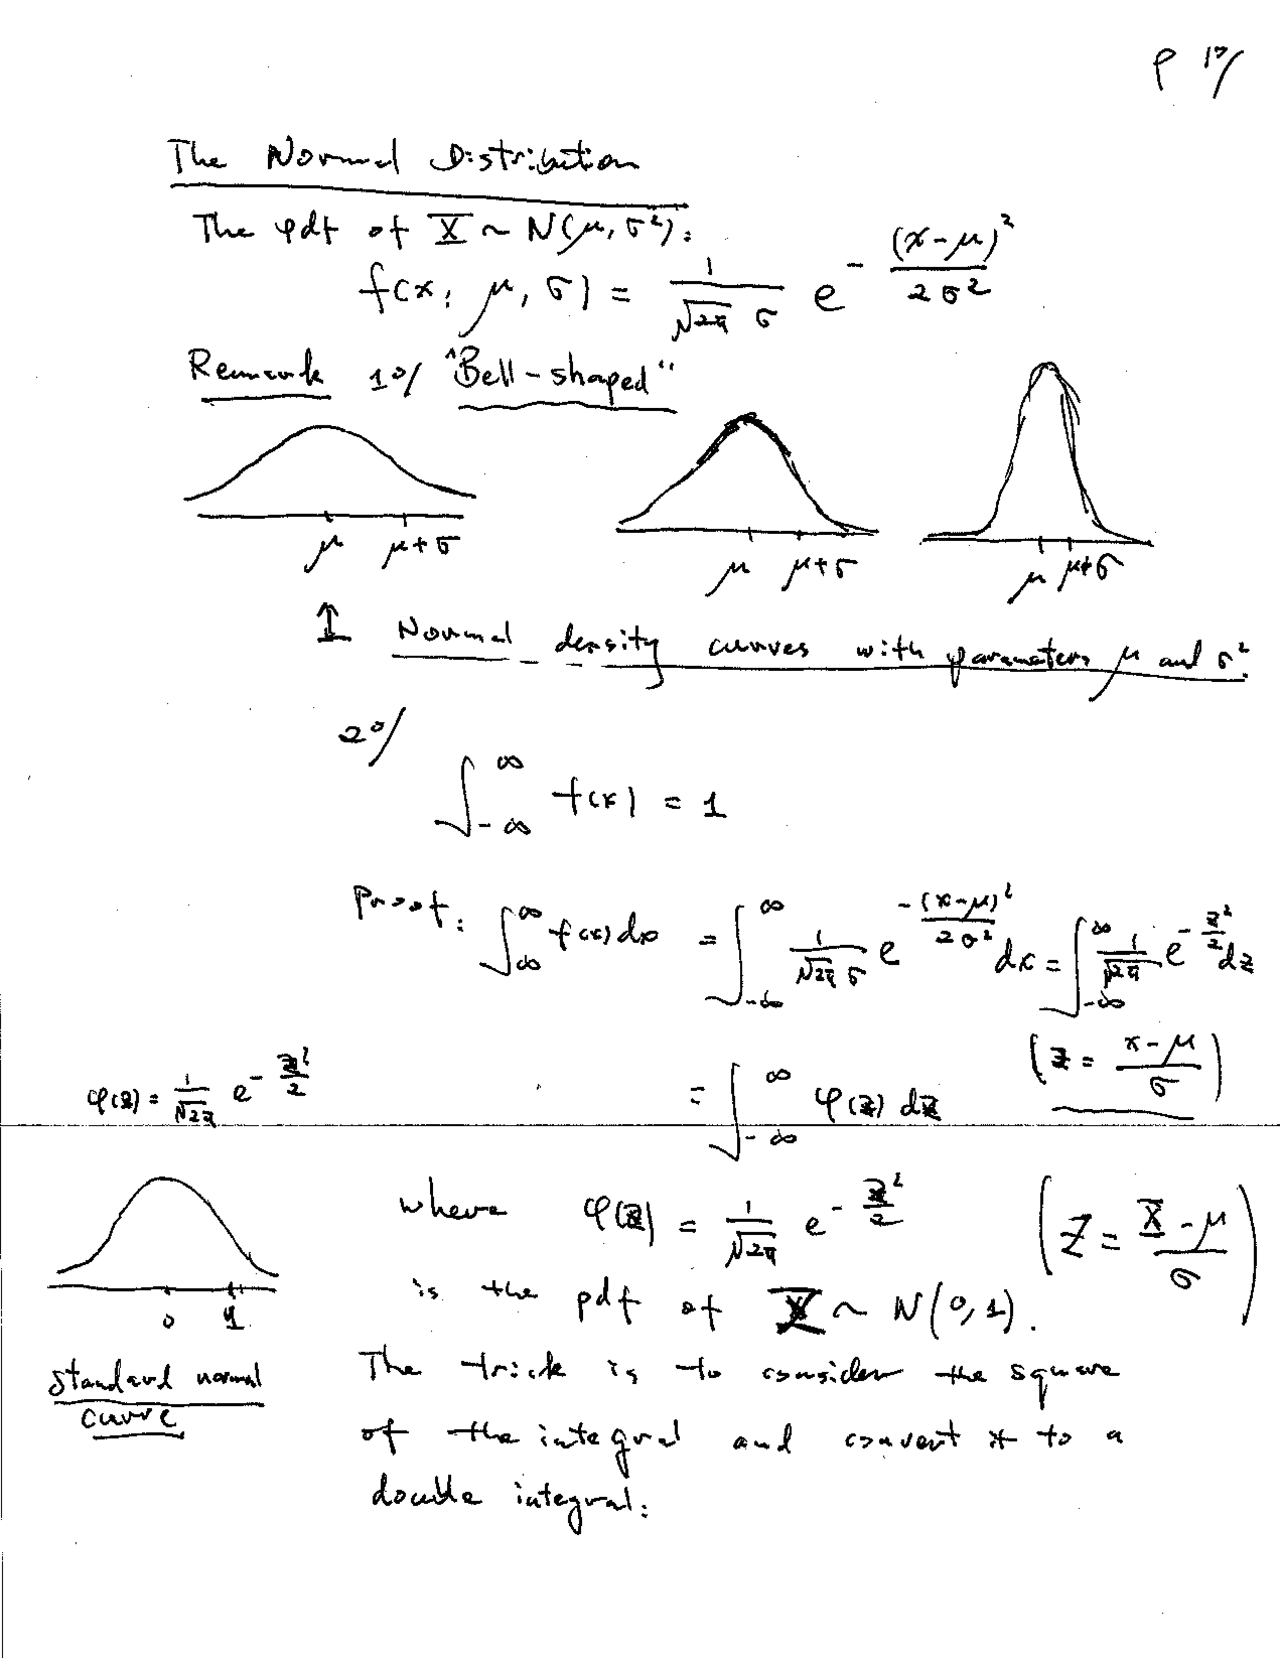 P 1°/
The Normal Distribution
The pdf of X ~ N(μ, σ²):
f(x; μ, σ) = 1/(√2π σ) e^(-(x-μ)²/(2σ²))
Remark 1°/ "Bell-shaped"
μ μ+σ μ μ+σ μ μ+σ
↑ Normal density curves with parameters μ and σ².
2°/
∫_{-∞}^{∞} f(x) = 1
Proof: ∫_{∞}^{∞} f(x) dx = ∫_{-∞}^{∞} 1/(√2π σ) e^(-(x-μ)²/(2σ²)) dx = ∫_{-∞}^{∞} 1/√2π e^(-z²/2) dz
(z = (x-μ)/σ)
φ(z) = 1/√2π e^(-z²/2)
= ∫_{-∞}^{∞} φ(z) dz
where φ(z) = 1/√2π e^(-z²/2) (Z = (X-μ)/σ)
is the pdf of ~ N(0, 1).
0 1
standard normal
curve
The trick is to consider the square
of the integral and convert it to a
double integral: